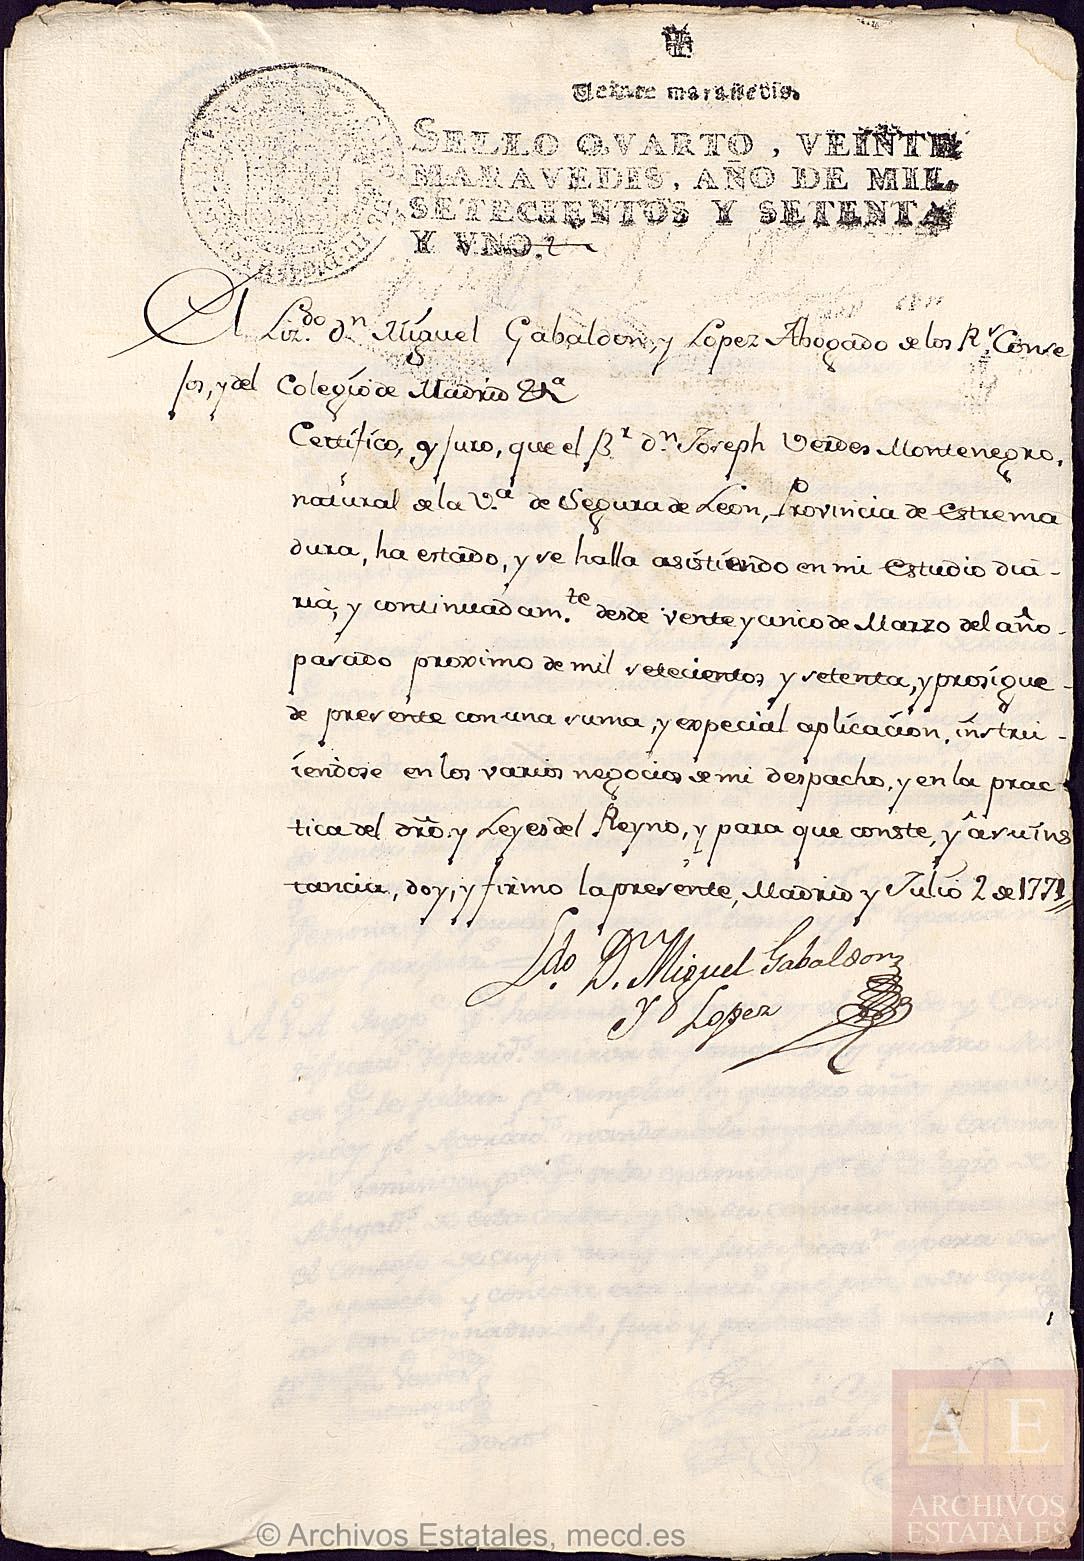 Veinte maravedis.
SELLO QVARTO, VEINTE
MARAVEDIS, AÑO DE MIL
SETECIENTOS Y SETENTA
Y VNO.
Liz.do dn. Miguel Gabaldon, y Lopez Abogado de los Rs. Conse
jos, y del Colegio de Madrid &a
Certifico, y juro, que el Br. dn. Joseph Verdes Montenegro,
natural de la V.a de Segura de Leon, Provincia de Estrema
dura, ha estado, y se halla asistiendo en mi Estudio dia-
ria, y continuadam.te desde vente y cinco de Marzo del año
pasado proximo de mil setecientos y setenta, y prosigue
de presente con una suma, y especial aplicacion, instru-
iendose en los varios negocios de mi despacho, y en la prac-
tica del dro. y Leyes del Reyno, y para que conste, y â su ins
tancia, doy, y firmo la presente, Madrid y Julio 2 de 1771
Ldo. Dn. Miguel Gabaldon
y Lopez
© Archivos Estatales, mecd.es
AE
ARCHIVOS
ESTATALES